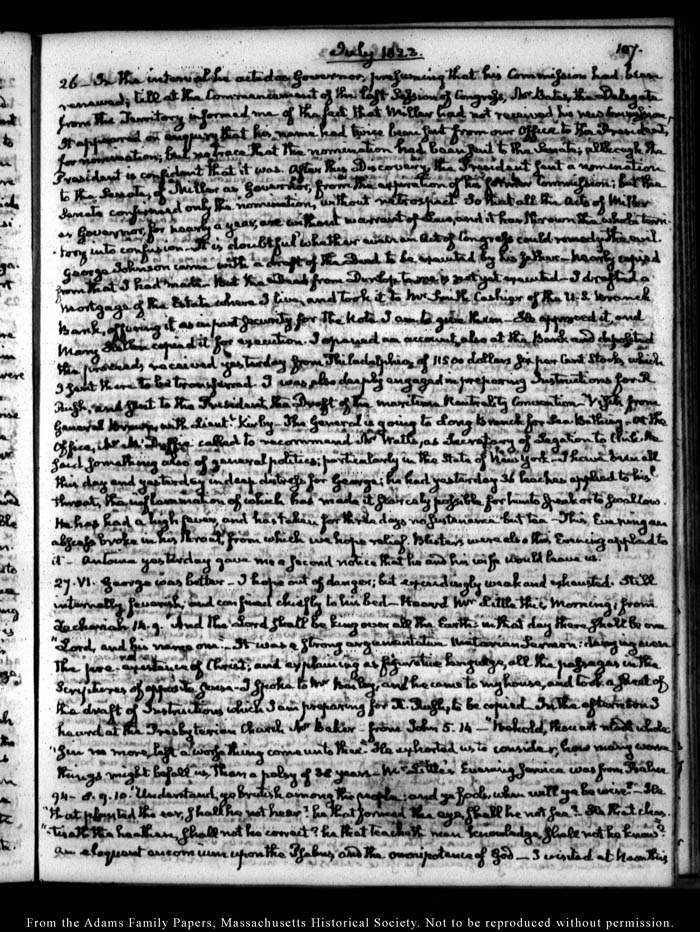 July 1823.
107.
26 - In the interval he acted as Governor, presuming that his Commission had been
renewed; till at the Commencement of the last Session of Congress, Mr Bates, the Delegate
from the Territory informed me of the fact that Miller had not received his new Commission,
It appeared on enquiry that his name had twice been sent from our Office to the President,
for nomination; but no trace that the nomination had been sent to the Senate; although the
President is confident that it was. After this Discovery the President sent a nomination
to the Senate, of Miller as Governor, from the expiration of his former Commission; but the
Senate confirmed only the nomination, without retrospect. So that all the Acts of Miller
as Governor, for nearly a year, are without warrant of Law, and it has thrown the whole terri-
tory into confusion. It is doubtful whether even an Act of Congress could remedy the evil.
George Johnson came with a draft of the Deed to be executed by his father - nearly copied
from that I had made. But the Deed from Dunlop to me is not yet executed - I drafted a
Mortgage of the Estate where I live, and took it to Mr Smith Cashier of the U.S. Branch
Bank, offering it as in part security for the Note I am to give them - He approved it, and
Mary copied it for execution. I opened an account also at the Bank and deposited
the proceeds, received yesterday from Philadelphia, of 11500 dollars six per Cent Stock, which
I sent there to be transferred. I was also deeply engaged in preparing Instructions for R.
Rush, and sent to the President the Draft of the maritime Neutrality Convention - Visit from
General Brown, with Lieut. Kirby - The General is going to Long Branch for Sea Bathing - At the
Office, Mr McDuffie called to recommend Mr Watts, as Secretary of Legation to Chili. He
said something also of general politics; particularly in the State of New York - I have been all
this day and yesterday in deep distress for George; he had yesterday 36 leaches applied to his
throat, the inflammation of which has made it scarcely possible for him to speak or to swallow.
He has had a high fever, and has taken for three days no sustenance but tea - This Evening an
abscess broke in his throat, from which we hope relief. Blisters were also this Evening applied to
it - Antoine yesterday gave me a second notice that he and his wife would leave us.
27. VI. George was better - I hope out of danger; but exceedingly weak and exhausted. Still
internally feverish, and confined chiefly to his bed - Heard Mr Little this Morning; from
Zechariah 14. 9. "And the Lord shall be king over all the Earth: in that day there shall be one
"Lord, and his name one" - It was a strong argumentative Unitarian Sermon: denying even
the pre-existence of Christ; and explaining as figurative language, all the passages in the
Scriptures of opposite sense - I spoke to Mr Bailey, and he came to my house, and took a sheet of
the draft of Instructions which I am preparing for R. Rush, to be copied. In the afternoon I
heard at the Presbyterian Church Mr Baker - from John 5. 14 - "Behold, thou art made whole
"Sin no more, lest a worse thing come unto thee." He exhorted us to consider, how many worse
things might befall us, than a palsy of 38 years - Mr Little's Evening Service was from Psalm
94 - 8. 9. 10. "Understand, ye brutish among the people: and ye fools, when will ye be wise? - He
"that planted the ear, shall he not hear? he that formed the eye, shall he not see? - He that chas-
"tiseth the heathen, shall not he correct? he that teacheth man knowledge, shall not he know?"
an eloquent encomium upon the Psalms, and the omnipotence of God - I visited at Noon this
From the Adams Family Papers, Massachusetts Historical Society. Not to be reproduced without permission.